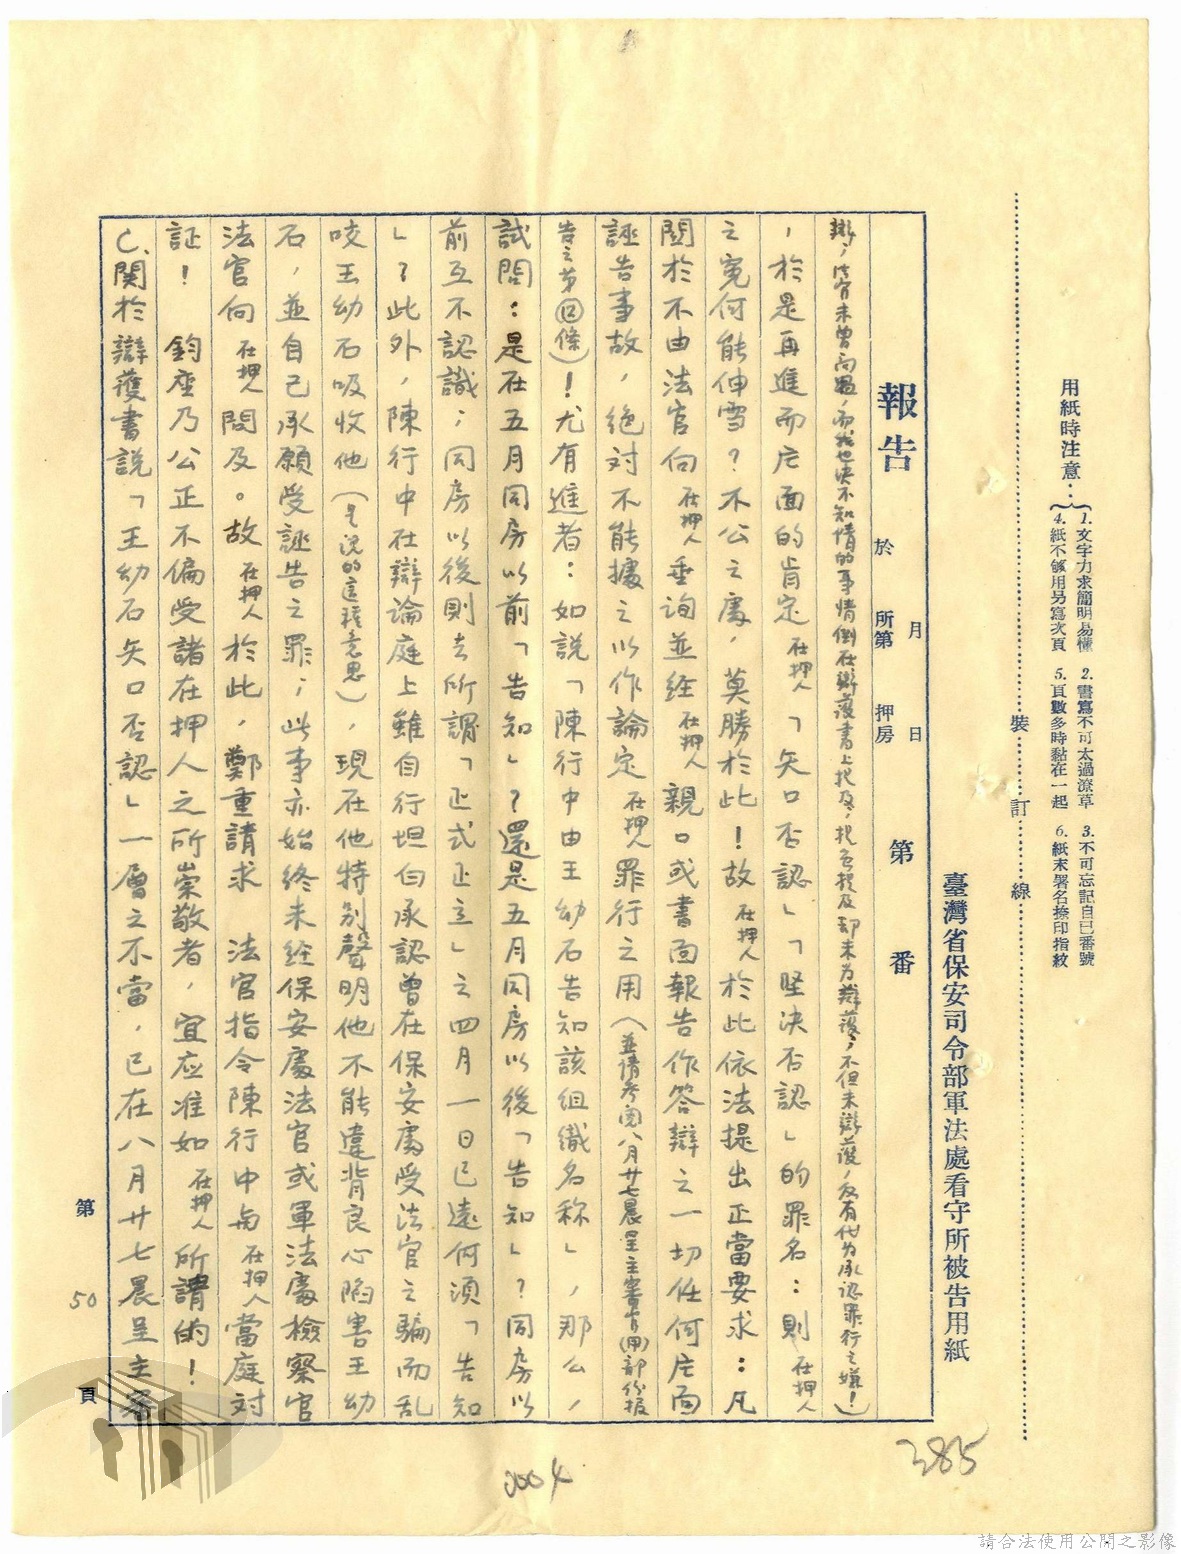 用紙時注意：
1. 文字力求簡明易懂 2. 書寫不可太過潦草 3. 不可忘記自已番號
4. 紙不够用另寫次頁 5. 頁數多時黏在一起 6. 紙末署名捺印指紋
裝 訂 線
臺灣省保安司令部軍法處看守所被告用紙
報告 於 月 日 所第 押房 第 番
法官未曾向過，而我也決不知情的事情倒在辯護書上提及，提及却未为辯護，不但未辯護，反有代为承認罪行之嫌！）
，於是再進而片面的肯定在押人「矢口否認」「堅決否認」的罪名：則在押人
之寃何能伸雪？不公之處，莫勝於此！故在押人於此依法提出正當要求：凡
関於不由法官向在押人垂詢並経在押人親口或書面報告作答辯之一切任何片面
誣告事故，絶对不能據之以作論定在押人罪行之用（並請参閲八月廿七晨呈主審官(甲)部份报
告之第四條）！尤有進者：如說「陳行中由王幼石告知該組織名称」，那么，
試問：是在五月同房以前「告知」？還是五月同房以後「告知」？同房以
前互不認識；同房以後則去所謂「正式正立」之四月一日已遠何須「告知
」？此外，陳行中在辯論庭上雖自行坦白承認曾在保安處受法官之騙而乱
咬王幼石吸收他（是說的這種意思），現在他特别聲明他不能違背良心陷害王幼
石，並自己承願受誣告之罪；此事亦始終未経保安處法官或軍法處檢察官
法官向在押人問及。故在押人於此，鄭重請求 法官指令陳行中与在押人當庭对
証！ 鈞座乃公正不偏受諸在押人之所崇敬者，宜应准如在押人所請的！
C、関於辯護書說「王幼石矢口否認」一層之不當，已在八月廿七晨呈主審
第 50 頁
385
0004
請合法使用公開之影像